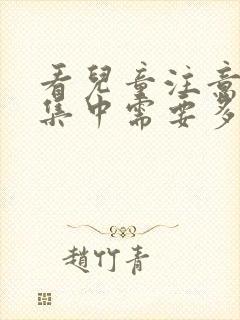 看兒童注意
集中需要多
趙竹青